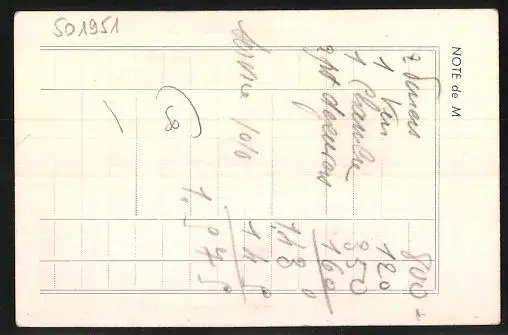 501951
NOTE de M
2 Diners 800
1 Vin 120
1 Chambre 350
2 pt dejeuners 160
1430
Service 10% 145
1.575
(8)